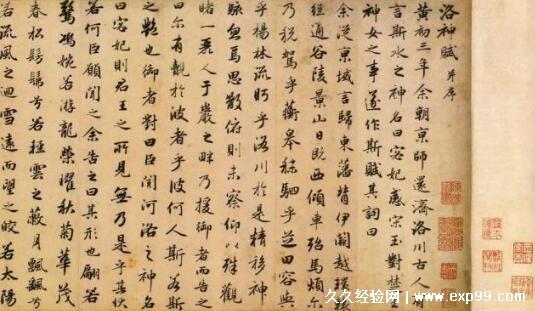 洛神賦 并序
黃初三年余朝京師還濟洛川古人有
言斯水之神名曰宓妃感宋玉對楚王
神女之事遂作斯賦其詞曰
余從京域言歸東藩背伊闕越轘轅
經通谷陵景山日既西傾車殆馬煩尒
乃稅駕乎蘅皋秣駟乎芝田容與
乎楊林流眄乎洛川於是精移神
駭焉思散俯則未察仰以殊觀
睹一麗人于巖之畔乃援御者而告之
曰尒有覿於彼者乎彼何人斯若斯
之艷也御者對曰臣聞河洛之神名
曰宓妃則君王之所見無乃是乎其狀
若何臣願聞之余告之曰其形也翩若
驚鴻婉若游龍榮曜秋菊華茂
春松髣髴兮若輕雲之蔽月飄飄兮
若流風之迴雪遠而望之皎若太陽
久久经验网
www.exp99.com